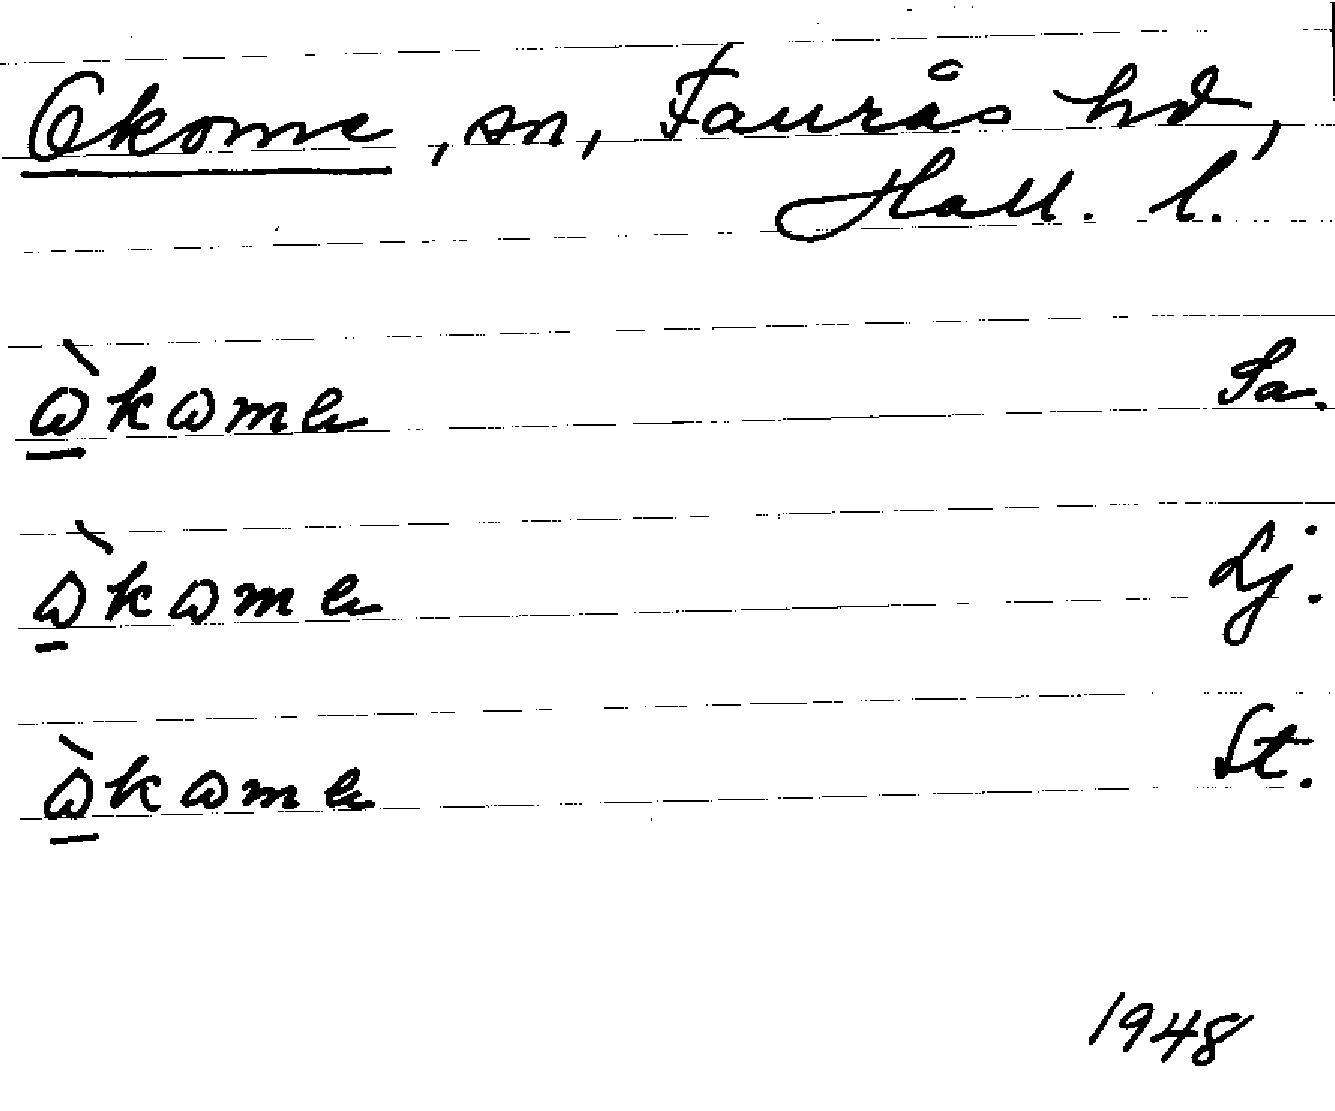 Okome, sn, Faurås hd,
Hall. l.
ɷ̀kɷmə Sa.
ɷ̀kɷmə Lj.
ɷ̀kɷmə St.
1948